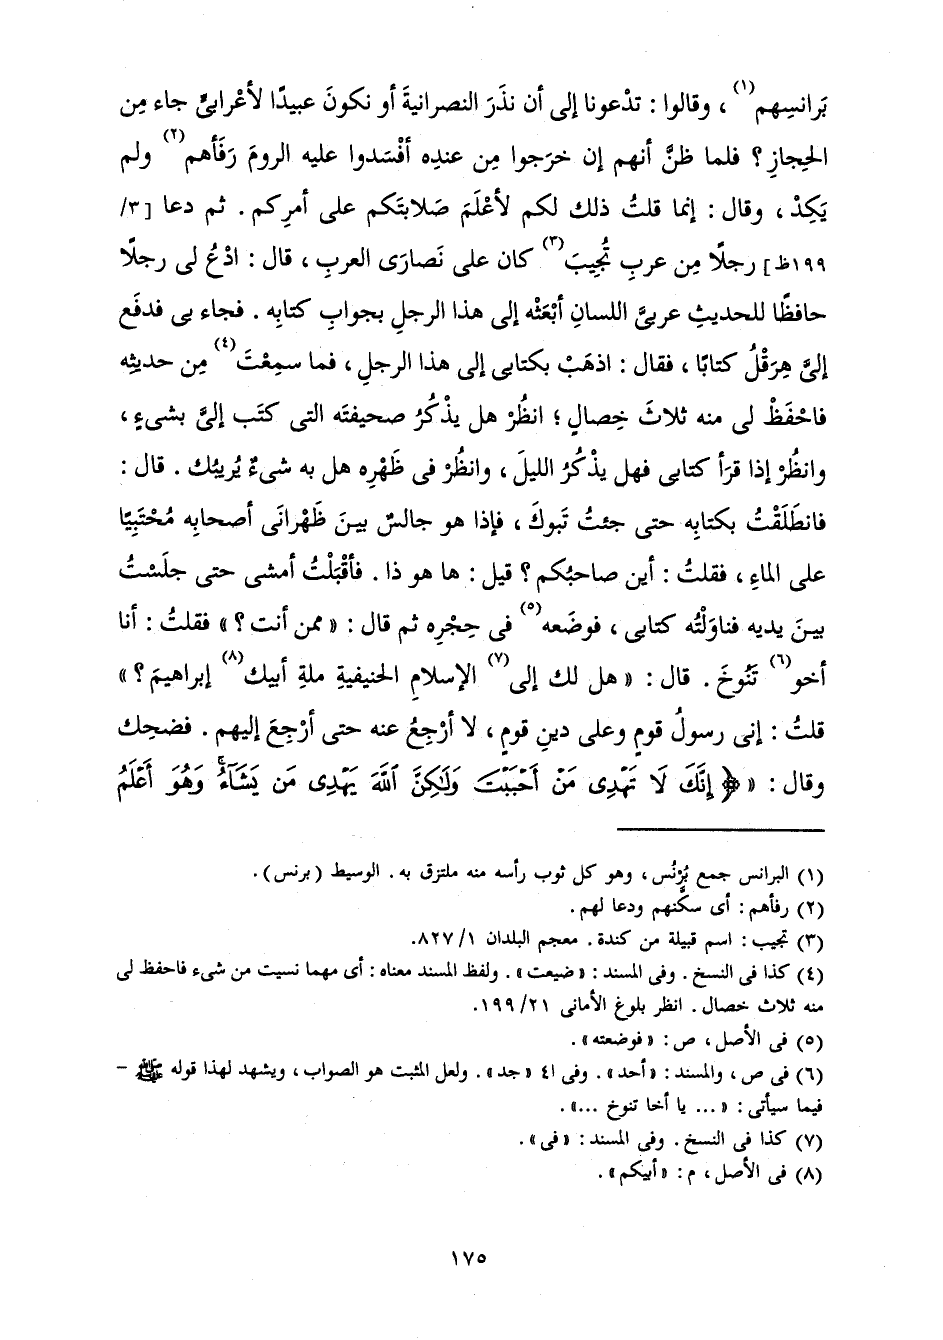 بَرانسِهم(١) ، وقالوا : تدْعونا إلى أن نذَرَ النصرانيةَ أو نكونَ عبيدًا لأعْرابىٍّ جاء مِن
الحِجازِ ؟ فلما ظنَّ أنهم إن خرَجوا مِن عندِه أفْسَدوا عليه الرومَ رَفَأهم(٢) ولم
يَكِدْ ، وقال : إنما قلتُ ذلك لكم لأعْلَمَ صَلابتَكم على أمرِكم . ثم دعا [٣/
١٩٩ظ] رجلًا مِن عربِ تُجِيبَ(٣) كان على نَصارَى العربِ ، قال : ادْعُ لى رجلًا
حافظًا للحديثِ عربىَّ اللسانِ أبْعَثْه إلى هذا الرجلِ بجوابِ كتابِه . فجاء بى فدفَع
إلىَّ هِرَقْلُ كتابًا ، فقال : اذهَبْ بكتابى إلى هذا الرجلِ ، فما سمِعْتَ(٤) مِن حديثِه
فاحْفَظْ لى منه ثلاثَ خِصالٍ ؛ انظُرْ هل يذْكُرُ صحيفتَه التى كتَب إلىَّ بشىءٍ ،
وانظُرْ إذا قرَأ كتابى فهل يذْكُرُ الليلَ ، وانظُرْ فى ظَهْرِه هل به شىءٌ يُرِيبُك . قال :
فانطَلَقْتُ بكتابِه حتى جئتُ تَبوكَ ، فإذا هو جالسٌ بينَ ظَهْرانَى أصحابِه مُحْتَبِيًا
على الماءِ ، فقلتُ : أين صاحبُكم ؟ قيل : ها هو ذا . فأقْبَلْتُ أمشى حتى جلَسْتُ
بينَ يديه فناوَلْتُه كتابى ، فوضَعه(٥) فى حِجْرِه ثم قال : « ممن أنت ؟ » فقلتُ : أنا
أخو(٦) تَنُوخَ . قال : « هل لك إلى(٧) الإسلامِ الحنيفيةِ ملةِ أبيك(٨) إبراهيمَ ؟ »
قلتُ : إنى رسولُ قومٍ وعلى دينِ قومٍ ، لا أرْجِعُ عنه حتى أرْجِعَ إليهم . فضحِك
وقال : « ﴿ إِنَّكَ لَا تَهْدِى مَنْ أَحْبَبْتَ وَلَٰكِنَّ ٱللَّهَ يَهْدِى مَن يَشَآءُ ۚ وَهُوَ أَعْلَمُ
(١) البرانس جمع بُرْنُس ، وهو كل ثوب رأسه منه ملتزق به . الوسيط (برنس) .
(٢) رفأهم : أى سكَّنهم ودعا لهم .
(٣) تجيب : اسم قبيلة من كندة . معجم البلدان ١/ ٨٢٧.
(٤) كذا فى النسخ . وفى المسند : « ضيعت » . ولفظ المسند معناه : أى مهما نسيت من شىء فاحفظ لى
منه ثلاث خصال . انظر بلوغ الأمانى ٢١/ ١٩٩.
(٥) فى الأصل ، ص : « فوضعته » .
(٦) فى ص ، والمسند : « أحد » . وفى ٤١ « جد » . ولعل المثبت هو الصواب ، ويشهد لهذا قوله ﷺ -
فيما سيأتى : « ... يا أخا تنوخ ... » .
(٧) كذا فى النسخ . وفى المسند : « فى » .
(٨) فى الأصل ، م : « أبيكم » .
١٧٥